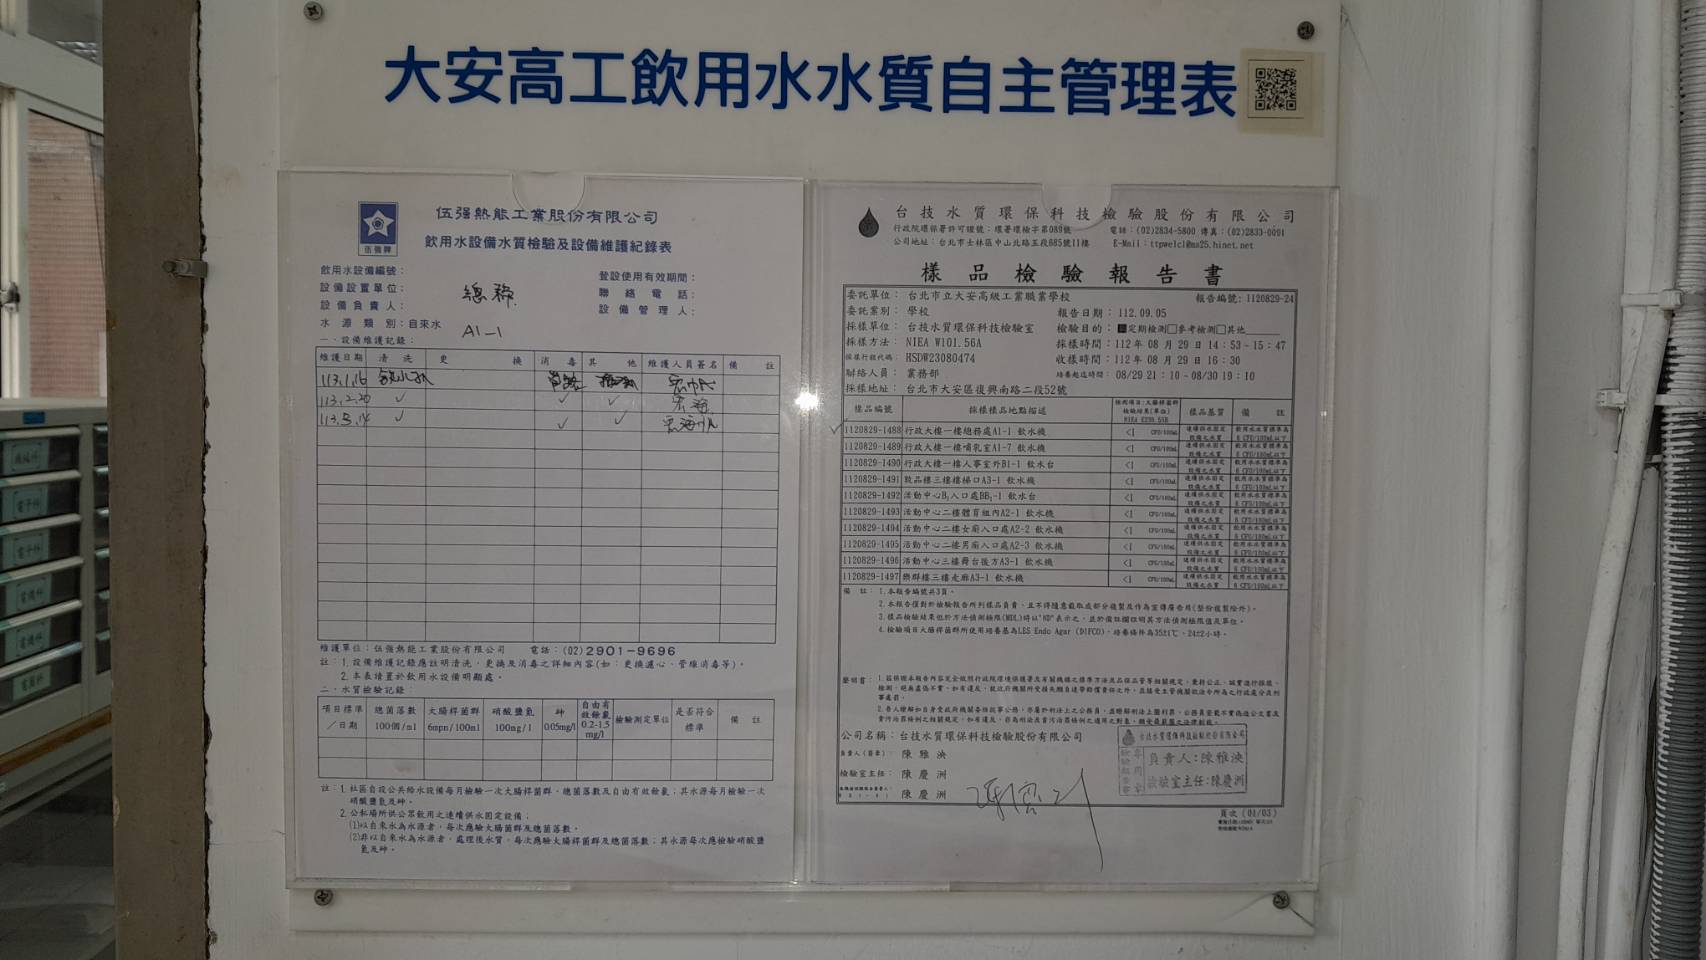 大安高工飲用水水質自主管理表
伍強牌
伍强熱能工業股份有限公司
飲用水設備水質檢驗及設備維護紀錄表
飲用水設備編號：
設備設置單位：總務
設備負責人：
水源類別：自來水 A1-1
登設使用有效期間：
聯絡電話：
設備管理人：
一、設備維護記錄：
維護日期 清洗 更換 消毒 其他 維護人員簽名 備註
113.1.16
113.2.20 ✓ ✓ ✓
113.3.14 ✓ ✓ ✓
維護單位：伍强熱能工業股份有限公司 電話：(02)2901-9696
註：1.設備維護記錄應註明清洗、更換及消毒之詳細內容(如：更換濾心、管線消毒等)。
2.本表請置於飲用水設備明顯處。
二、水質檢驗記錄：
項目標準／日期 總菌落數 100個/ml 大腸桿菌群 6mpn/100ml 硝酸鹽氮 100mg/l 砷 0.05mg/l 自由有效餘氯 0.2-1.5 mg/l 檢驗測定單位 是否符合標準 備註
註：1.社區自設公共給水設備每月檢驗一次大腸桿菌群、總菌落數及自由有效餘氯；其水源每月檢驗一次
硝酸鹽氮及砷。
2.公私場所供公眾飲用之連續供水固定設備；
(1)以自來水為水源者，每次應驗大腸桿菌群及總菌落數。
(2)非以自來水為水源者，處理後水質，每次應驗大腸桿菌群及總菌落數；其水源每次應檢驗硝酸鹽
氮及砷。
台技水質環保科技檢驗股份有限公司
行政院環保署許可證號：環署環檢字第089號 電話：(02)2834-5800 傳真：(02)2833-0091
公司地址：台北市士林區中山北路五段685號11樓 E-Mail：ttpwelcl@ms25.hinet.net
樣品檢驗報告書
委託單位：台北市立大安高級工業職業學校 報告編號：1120829-24
委託業別：學校 報告日期：112.09.05
採樣單位：台技水質環保科技檢驗室 檢驗目的：■定期檢測□參考檢測□其他
採樣方法：NIEA W101.56A 採樣時間：112年08月29日14：53-15：47
採樣行程代碼：HSDW23080474 收樣時間：112年08月29日16：30
聯絡人員：業務部 培養起迄時間：08/29 21：10-08/30 19：10
採樣地址：台北市大安區復興南路二段52號
樣品編號 採樣樣品地點描述 檢測項目:大腸桿菌群 檢驗結果(單位) 樣品基質 備註
1120829-1488 行政大樓一樓總務處A1-1 飲水機 <1 CFU/100mL 連續供水固定設備之水質 飲用水水質標準為6 CFU/100mL以下
1120829-1489 行政大樓一樓哺乳室A1-7 飲水機 <1 CFU/100mL 連續供水固定設備之水質 飲用水水質標準為6 CFU/100mL以下
1120829-1490 行政大樓一樓人事室外B1-1 飲水台 <1 CFU/100mL 連續供水固定設備之水質 飲用水水質標準為6 CFU/100mL以下
1120829-1491 敦品樓三樓樓梯口A3-1 飲水機 <1 CFU/100mL 連續供水固定設備之水質 飲用水水質標準為6 CFU/100mL以下
1120829-1492 活動中心B1入口處BB1-1 飲水台 <1 CFU/100mL 連續供水固定設備之水質 飲用水水質標準為6 CFU/100mL以下
1120829-1493 活動中心二樓體育組內A2-1 飲水機 <1 CFU/100mL 連續供水固定設備之水質 飲用水水質標準為6 CFU/100mL以下
1120829-1494 活動中心二樓女廁入口處A2-2 飲水機 <1 CFU/100mL 連續供水固定設備之水質 飲用水水質標準為6 CFU/100mL以下
1120829-1495 活動中心二樓男廁入口處A2-3 飲水機 <1 CFU/100mL 連續供水固定設備之水質 飲用水水質標準為6 CFU/100mL以下
1120829-1496 活動中心三樓舞台後方A3-1 飲水機 <1 CFU/100mL 連續供水固定設備之水質 飲用水水質標準為6 CFU/100mL以下
1120829-1497 樂群樓三樓走廊A3-1 飲水機 <1 CFU/100mL 連續供水固定設備之水質 飲用水水質標準為6 CFU/100mL以下
備註：1.本報告編號共3頁。
2.本報告僅對於檢驗報告所列樣品負責，且不得隨意截取或部分複製及作為宣傳廣告用(整份複製除外)。
3.樣品檢驗結果低於方法偵測極限(MDL)時以"ND"表示之，並於備註欄註明其方法偵測極限值及單位。
4.檢驗項目大腸桿菌群所使用培養基為LES Endo Agar (DIFCO)，培養條件為35±1℃、24±2小時。
公司名稱：台技水質環保科技檢驗股份有限公司
負責人(簽章)：陳雅泱
檢驗室主任：陳慶洲
陳慶洲
台技水質環保科技檢驗股份有限公司
負責人：陳雅泱
檢驗室主任：陳慶洲
頁次(01/03)